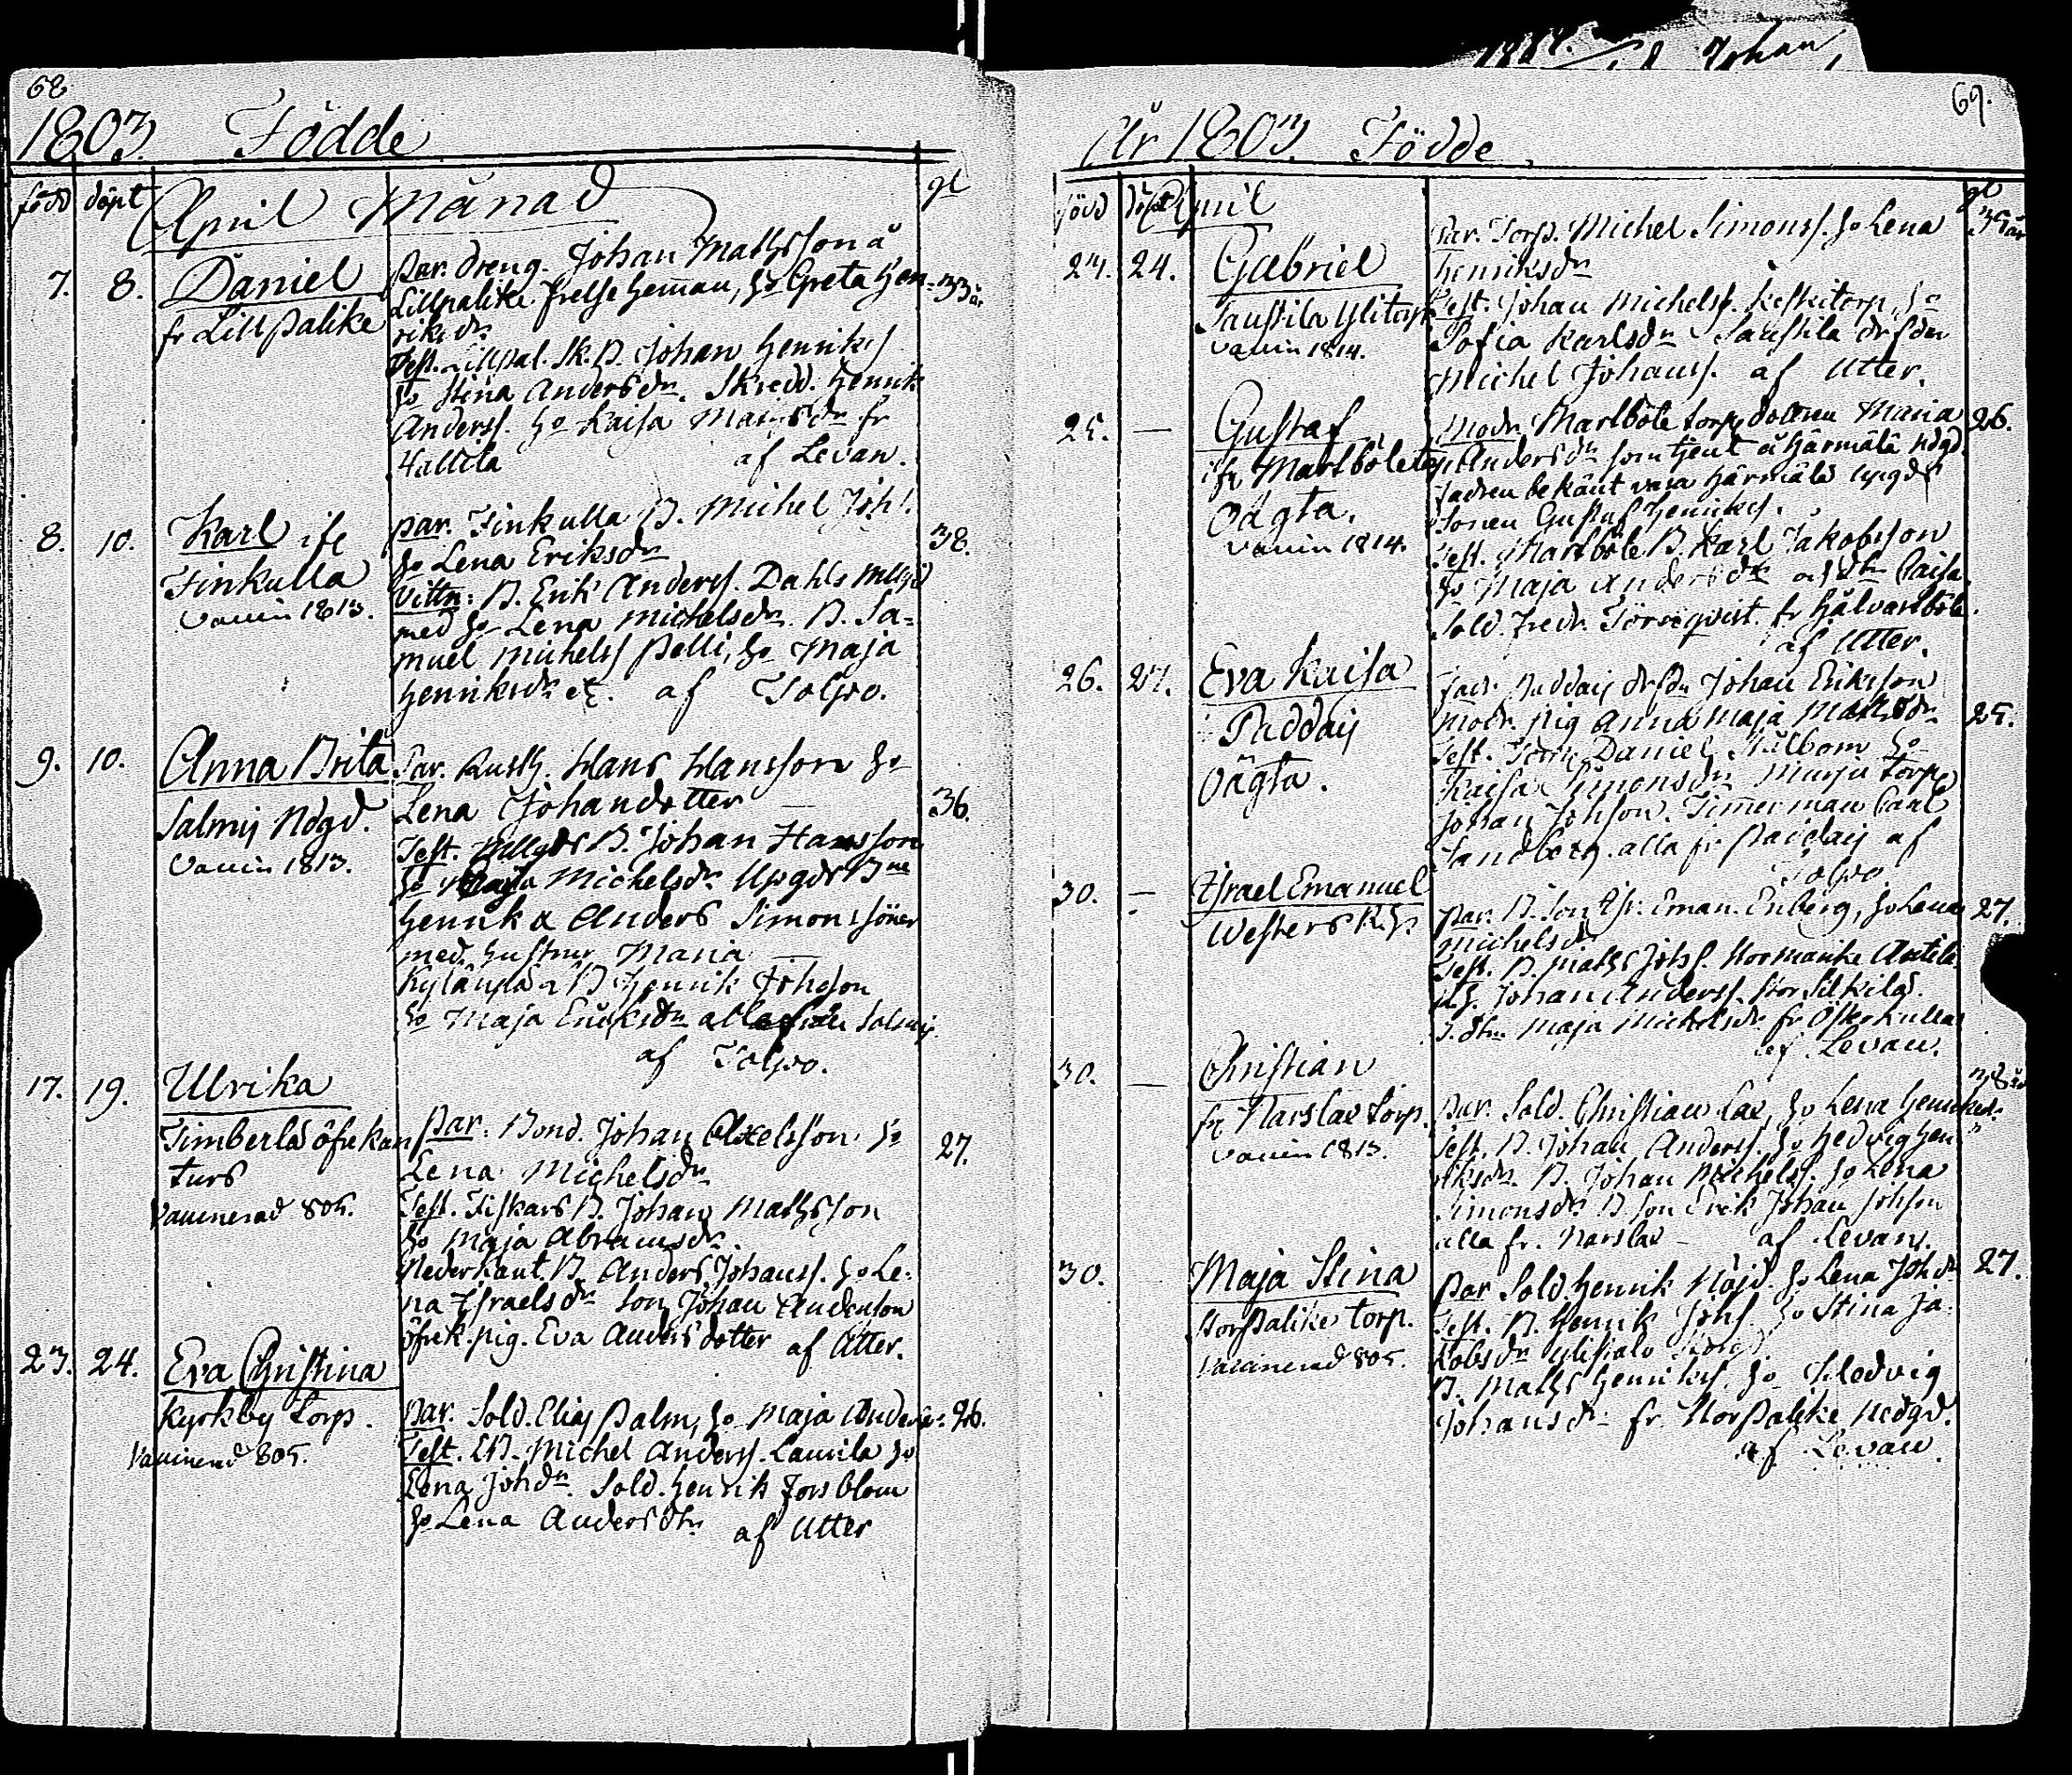 68
1803. Födde
född döpt April Månad gl
7. 8. Daniel
fr Lillpalike
Par. Dreng. Johan Mathsson å
Lillpalike frelse hemman, ho Greta Hen= 33 år
riksdr
Test. Lillpal. Sk. B. Johan Henriks
ho Stina Andersdr. Skredd. Henrik
Anderss. ho Kaisa dr fr
af Levan.
8. 10. Karl
Finkulla
Vaccin 1813.
Par. Finkulla B. Michel Joh!
ho Lena Eriksdr 38.
Vittn: B. Erik Anderss. Dahls
med ho Lena Michelsdr. B. Sa=
muel Michelss Pelli, ho Maja
Henriksdr &. af Tolpo.
9. 10. Anna Brita
Salmij Ndgd.
Vaccin 1813.
Par. Rusth. Hans Hansson ho
Lena Johandotter 36.
Test. B. Johan Hansson
ho Michelsdr Upgds
Henrik & Anders Simons söner
med hustrur Maria
B Henrik Johsson
ho Maja Ericksdr alla från Salmij.
af Tolpo.
17. 19. Ulrika
Timberla öfrekan
turs
Vaccinerad 805.
Par. Bond. Johan Axelsson ho 27.
Lena Michelsdr
Test. Fiskars B. Johan Mathsson
ho Maja Abramsdr.
Nederkant. B. Anders Johanss. ho Le=
na Israelsdr Son Johan Anderson
öfrek. pig. Eva Anders dotter af Utter.
23. 24. Eva Christina
Kyrkby torp.
Vaccinerad 805.
Par. Sold. Elias Palm, ho Maja Anders: 26.
Test. B. Michel Anderss. Laurila ho
Lena Johdr. Sold. Henrik Forsblom
ho Lena Andersdtr af Utter
69.
År 1803. Födde
född döpt April gl
24. Gabriel
Vaccin 1814.
Par. Torp. Michel Simonss. ho Lena
Henriksdr
Test. Johan Michelss. ho
Sofia Karlsdr
Michel Johanss. af Utter.
25. — Gustaf
fr Martböle
Oägta.
Vaccin 1814.
Modr. Martböle torp. dottren Maria 26.
Andersdr som tjent å Härmälä Ndgd.
fadren bekänt vara Härmälä
Sonen Gustaf Henriks.
Test. Martböle B. Karl Jakobsson
ho Maja Andersdr
Sold. Fredr. fr Hålvarsböle.
af Utter.
26. 27. Eva Kaisa
Paddaij
Oägta.
Fadr. Paddaij Johan Eriksson
Modr. pig Anna Maja Mathsdr 25.
Test. Torp. Daniel Stålbom ho
Kaisa Simonsdr torp
Johan Johsson. Timerman Carl
Sandberg. alla fr Paddaij af
Tolpo
30. — Israel Emanuel
Westers
Par. B. Son Isr. Eman. Enberg, ho Lena 27.
Michelsdr
Test. B. Maths Johss. Norrmarike
Johan Anderss. Stor
Maja Michelsdr fr Österkulla
af Levan.
30. — Christian
fr Narslax torp.
Vaccin 1813.
Par. Sold. Christian Lax, ho Lena Henriksdr
Test. B. Johan Anderss. ho Hedvig Hen
riksdr. B. Johan Michelss. ho Lena
Simonsdr B. Son Erik Johan Johsson
alla fr. Narslax — af Levan.
30. Maja Stina
Norpalike torp.
Vaccinerad 805.
Par Sold. Henrik Nöjd. ho Lena Johdr 27.
Test. B. Henrik Johss. ho Stina Ja=
kobsdr
B. Maths Henrikss. ho Hedvig
Johansdr fr Norpalike Nedgd.
af Levan.